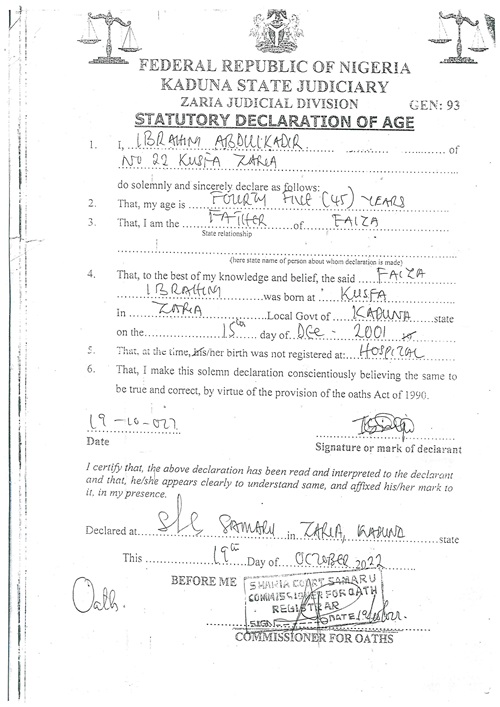 FEDERAL REPUBLIC OF NIGERIA
KADUNA STATE JUDICIARY
ZARIA JUDICIAL DIVISION GEN: 93
STATUTORY DECLARATION OF AGE
1. I, IBRAHIM ABDULKADIR of
NO 22 KUSFA ZARIA
do solemnly and sincerely declare as follows:
2. That, my age is FOURTY FIVE (45) YEARS
3. That, I am the FATHER of FAIZA
State relationship
(here state name of person about whom declaration is made)
4. That, to the best of my knowledge and belief, the said FAIZA
IBRAHIM was born at KUSFA
in ZARIA Local Govt of KADUNA state
on the 15th day of DEC - 2001
5. That, at the time, his/her birth was not registered at: HOSPITAL
6. That, I make this solemn declaration conscientiously believing the same to
be true and correct, by virtue of the provision of the oaths Act of 1990.
19-10-022
Date
Signature or mark of declarant
I certify that, the above declaration has been read and interpreted to the declarant
and that, he/she appears clearly to understand same, and affixed his/her mark to
it, in my presence.
Declared at SHC SAMARU in ZARIA, KADUNA state
This 19th Day of OCTOBER 2022
BEFORE ME
SHARIA COURT SAMARU
COMMISSIONER FOR OATH
REGISTRAR
SIGN DATE
Oath.
COMMISSIONER FOR OATHS